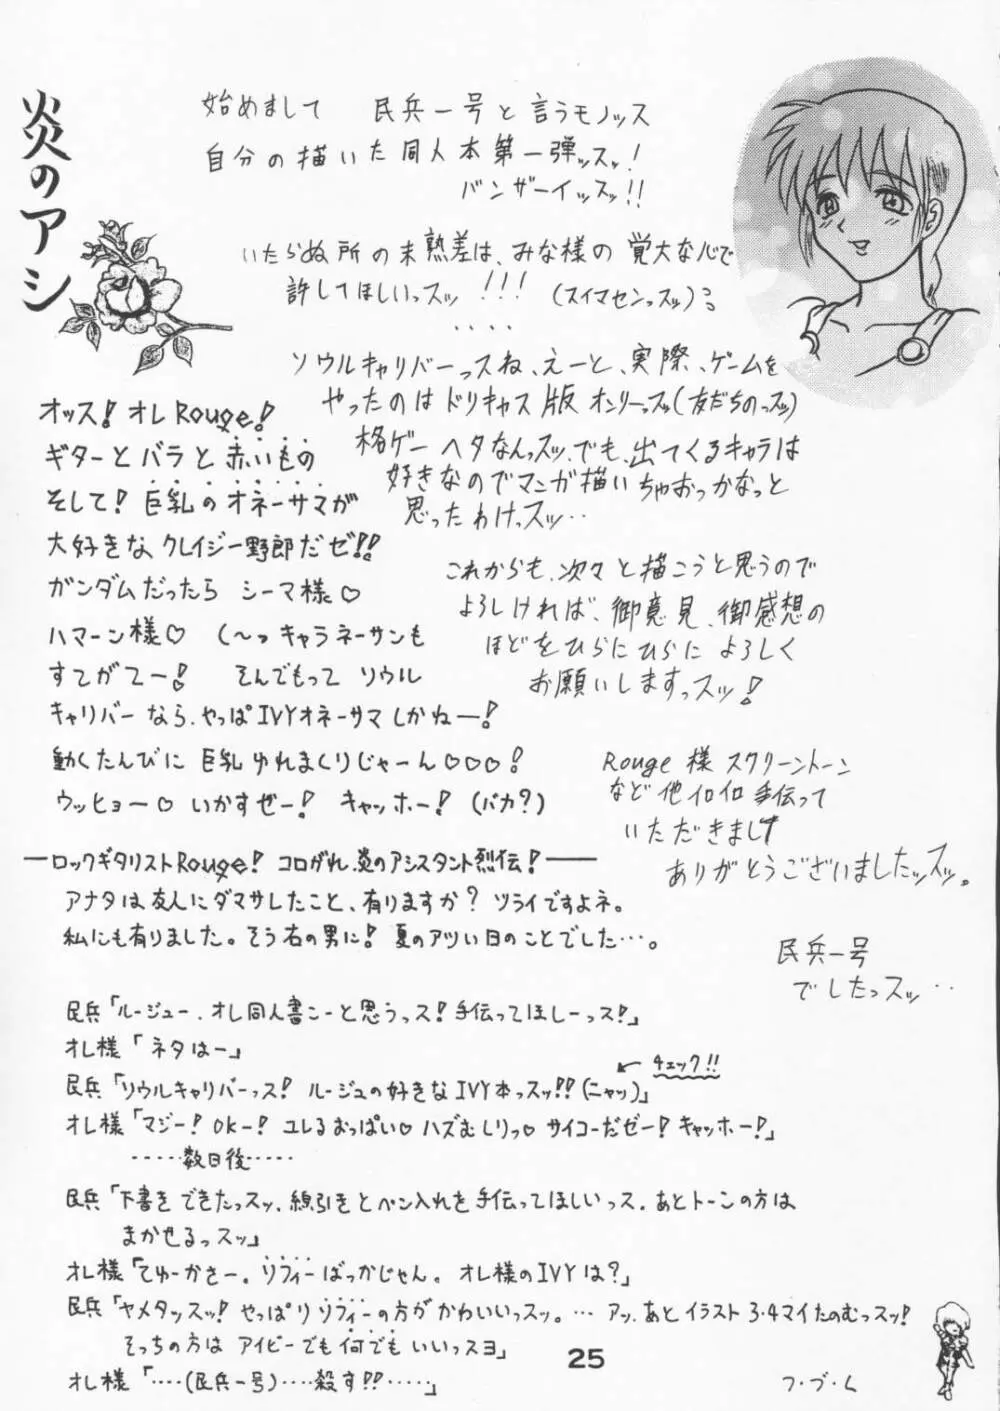 炎のアシ
始めまして 民兵一号と言うモノッス
自分の描いた同人本第一弾ッスッ!
バンザーイッスッ!!
いたらぬ所の未熟差は、みな様の覚大な心で
許してほしいっスッ!!! (スイマセンっスッ)
‥‥
ソウルキャリバーっスね、えーと、実際、ゲームを
やったのはドリキャス版オンリーっスッ(友だちのっスッ)
格ゲーヘタなんっスッ、でも、出てくるキャラは
好きなのでマンガ描いちゃおっかなっと
思ったわけっスッ‥
これからも、次々と描こうと思うので
よろしければ、御意見、御感想の
ほどをひらにひらによろしく
お願いしますっスッ!
Rouge様 スクリーントーン
など他イロイロ手伝って
いただきまして
ありがとうございましたッスッ。
民兵一号
でしたっスッ‥
オッス!オレRouge!
ギターとバラと赤いもの
そして!巨乳のオネーサマが
大好きなクレイジー野郎だゼ!!
ガンダムだったら シーマ様♡
ハマーン様♡ (〜っキャラネーサンも
すてがてー! そんでもって ソウル
キャリバーなら、やっぱIVYオネーサマしかねー!
動くたんびに巨乳ゆれまくりじゃーん♡♡♡!
ウッヒョー♡ いかすぜー! キャッホー! (バカ?)
―ロックギタリストRouge! コロがれ、炎のアシスタント烈伝!―
アナタは友人にダマサレたこと、有りますか? ツライですよネ。
私にも有りました。そう右の男に! 夏のアツい日のことでした‥‥。
民兵「ルージュー、オレ同人書こーと思うっス!手伝ってほしーっス!」
オレ様「ネタはー」
チェック!!
民兵「ソウルキャリバーっス! ルージュの好きなIVY本っスッ!!(ニャッ)」
オレ様「マジー!OKー!ユレるおっぱい♡ハズむしりっ♡サイコーだゼー!キャッホー!」
‥‥‥数日後‥‥‥
民兵「下書きできたっスッ、線引きとペン入れを手伝ってほしいっス、あとトーンの方は
まかせるっスッ」
オレ様「てゆーかさー。ソフィーばっかじゃん。オレ様のIVYは?」
民兵「ヤメタッスッ!やっぱりソフィーの方がかわいいっスッ。… アッ、あとイラスト3・4マイたのむっスッ!
そっちの方はアイビーでも何でもいいっスヨ」
オレ様「‥‥(民兵一号)‥‥殺す!!‥‥‥」
25
フ・ブ・ム